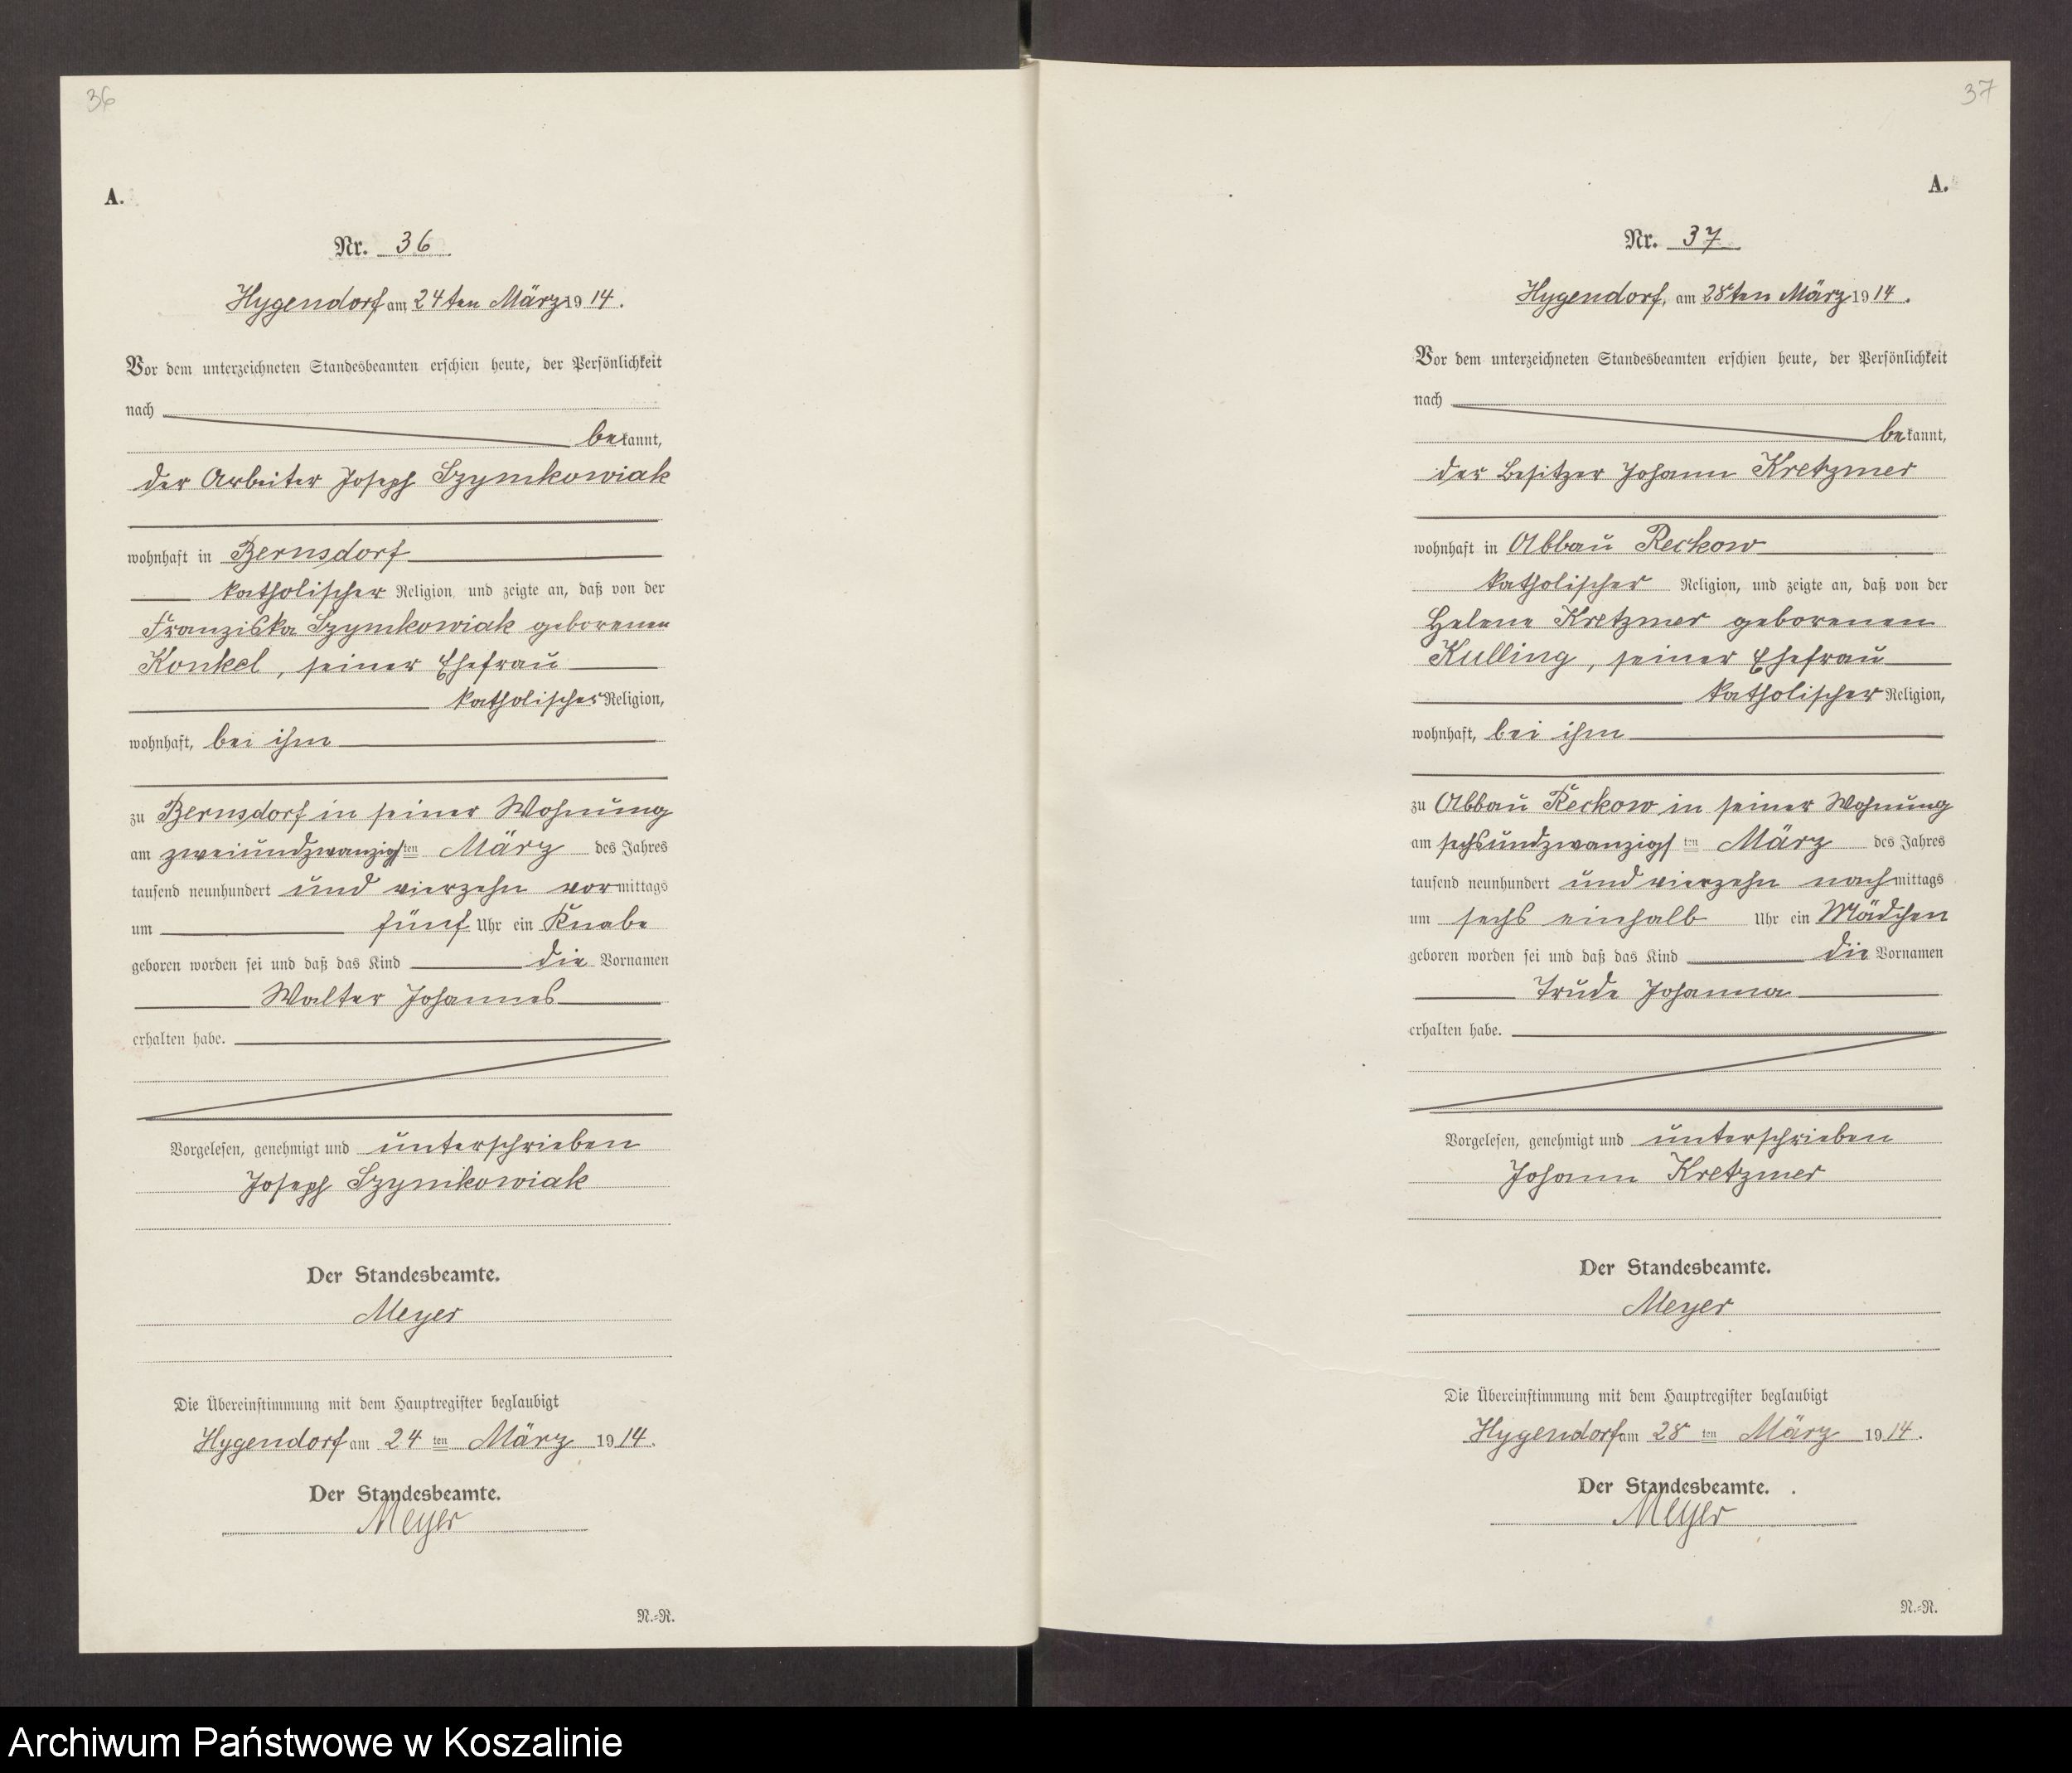 36
A.
Nr. 36.
Hygendorf am 24ten März 1914.
Vor dem unterzeichneten Standesbeamten erschien heute, der Persönlichkeit
nach
bekannt,
der Arbeiter Joseph Szymkowiak
wohnhaft in Bernsdorf
katholischer Religion, und zeigte an, daß von der
Franziska Szymkowiak geborenen
Konkel, seiner Ehefrau
katholischer Religion,
wohnhaft, bei ihm
zu Bernsdorf in seiner Wohnung
am zweiundzwanzigsten März des Jahres
tausend neunhundert und vierzehn vormittags
um fünf Uhr ein Knabe
geboren worden sei und daß das Kind die Vornamen
Walter Johannes
erhalten habe.
Vorgelesen, genehmigt und unterschrieben
Joseph Szymkowiak
Der Standesbeamte.
Meyer
Die Übereinstimmung mit dem Hauptregister beglaubigt
Hygendorf am 24 ten März 1914.
Der Standesbeamte.
Meyer
N.-R.
37
A.
Nr. 37.
Hygendorf, am 28ten März 1914.
Vor dem unterzeichneten Standesbeamten erschien heute, der Persönlichkeit
nach
bekannt,
der Besitzer Johann Kretzmer
wohnhaft in Abbau Reckow
katholischer Religion, und zeigte an, daß von der
Helene Kretzmer geborenen
Kulling, seiner Ehefrau
katholischer Religion,
wohnhaft, bei ihm
zu Abbau Reckow in seiner Wohnung
am sechsundzwanzigsten März des Jahres
tausend neunhundert und vierzehn nachmittags
um sechs einhalb Uhr ein Mädchen
geboren worden sei und daß das Kind die Vornamen
Trude Johanna
erhalten habe.
Vorgelesen, genehmigt und unterschrieben
Johann Kretzmer
Der Standesbeamte.
Meyer
Die Übereinstimmung mit dem Hauptregister beglaubigt
Hygendorf am 28 ten März 1914.
Der Standesbeamte.
Meyer
N.-R.
Archiwum Państwowe w Koszalinie